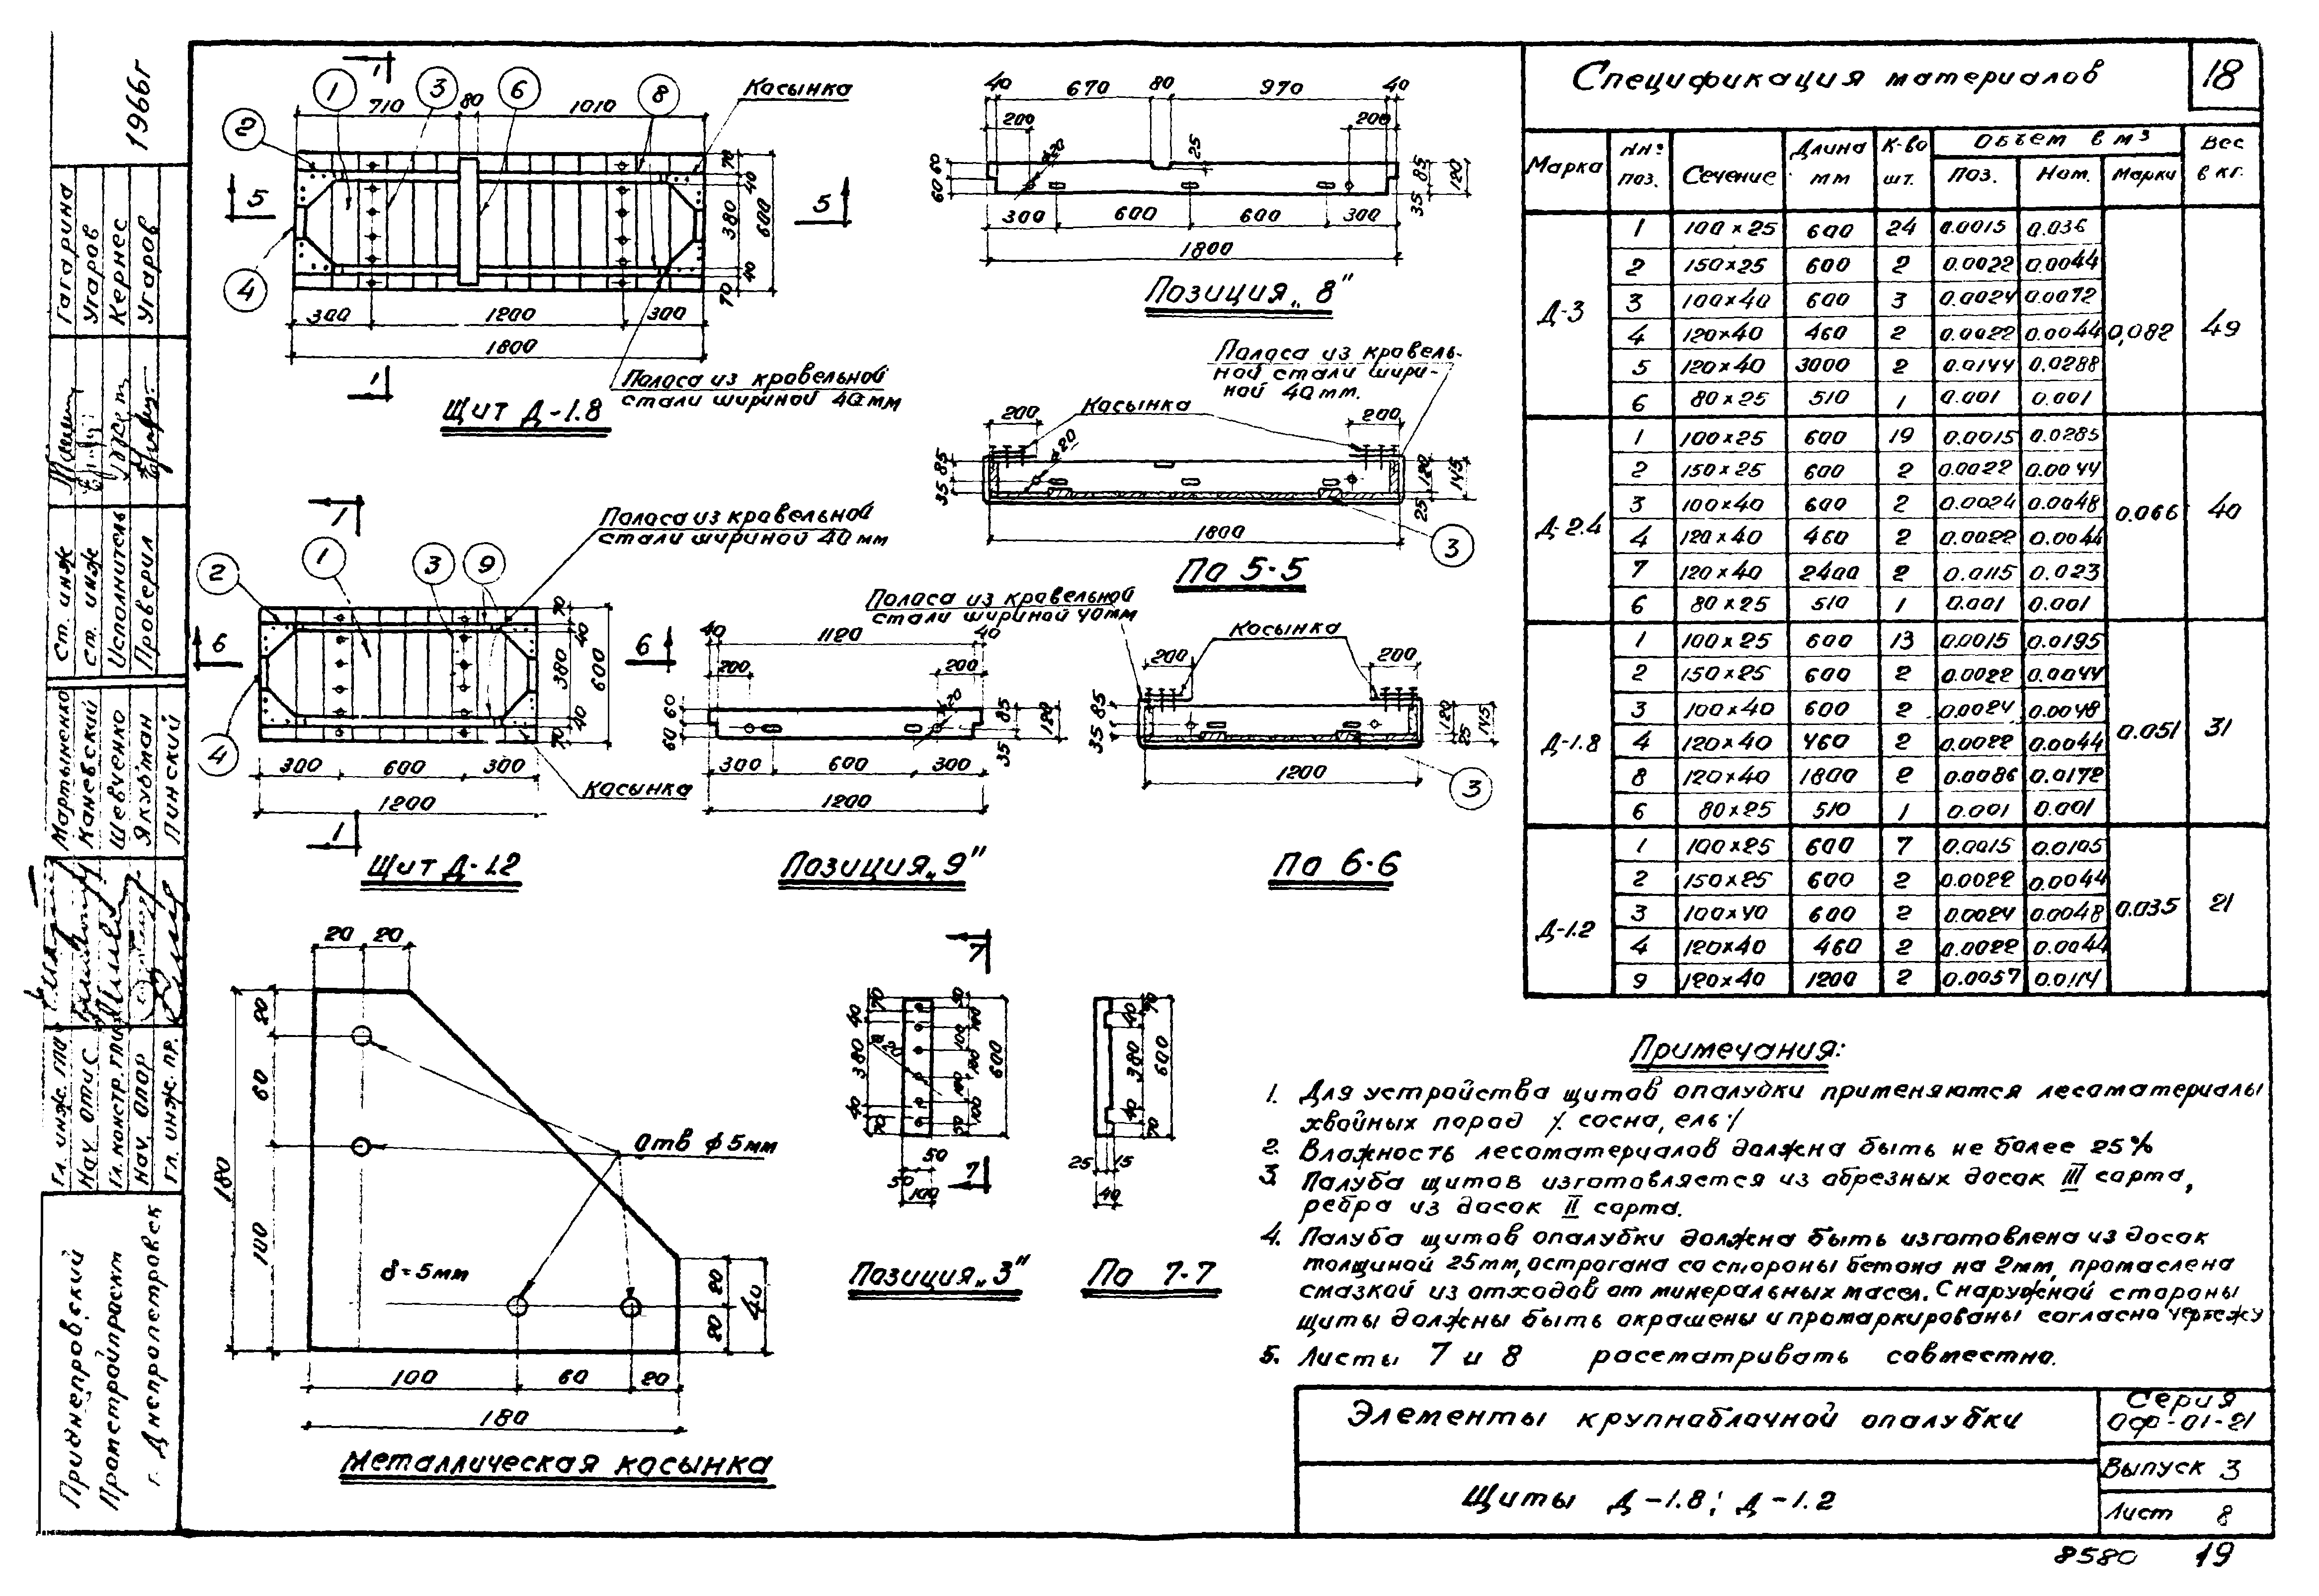 1966г
Гагарина
Угаров
Кернес
Угаров
Ст. инж
Ст. инж
Исполнитель
Проверил
Мартыненко
Каневский
Шевченко
Якубман
Пинский
Гл. инж. ПП
Нач. ОТиС
Гл. констр.
Нач. ОПОР
Гл. инж. пр.
Приднепровский
Промстройпроект
г. Днепропетровск
1 1 3 6 8 Косынка
710 80 1010
2
70 40 380 40 70 600
5 5
4
300 1200 300
1800
1
Полоса из кровельной
стали шириной 40мм
Щит Д-1.8
40 670 80 970 40
200 25 200
ø20
60 60 85 35 120
300 600 600 300
1800
Позиция „8"
Полоса из кровель-
ной стали шири-
ной 40мм.
Косынка
200 200
ø20
85 35 120 145 25
1800
3
По 5-5
1
Полоса из кровельной
стали шириной 40мм
2 1 3 9
70 40 380 40 70 600
6 6
4
300 600 300
1200
Косынка
1
Щит Д-1.2
Полоса из кровельной
стали шириной 40мм
40 1120 40
200 200
ø20
60 60 85 35 120
300 600 300
1200
Позиция „9"
Косынка
200 200
85 35 120 25 145
1200
3
По 6-6
20 20
20 60 100 180
Отв ф5мм
δ=5мм
20 20 40
100 60 20
180
Металлическая косынка
7
70 40 380 40 70
ø20
50 100 100 100 100 100 50 600
50 50 100
7
Позиция „3"
70 40 380 40 70 600
25 15
40
По 7-7
Спецификация материалов 18
Марка NNº поз. Сечение Длина мм К-во шт. Объем в м³ Вес в кг.
Поз. Ном. Марки
Д-3 0,082 49
1 100×25 600 24 0.0015 0.036
2 150×25 600 2 0.0022 0.0044
3 100×40 600 3 0.0024 0.0072
4 120×40 460 2 0.0022 0.0044
5 120×40 3000 2 0.0144 0.0288
6 80×25 510 1 0.001 0.001
Д-2.4 0.066 40
1 100×25 600 19 0.0015 0.0285
2 150×25 600 2 0.0022 0.0044
3 100×40 600 2 0.0024 0.0048
4 120×40 460 2 0.0022 0.0044
7 120×40 2400 2 0.0115 0.023
6 80×25 510 1 0.001 0.001
Д-1.8 0.051 31
1 100×25 600 13 0.0015 0.0195
2 150×25 600 2 0.0022 0.0044
3 100×40 600 2 0.0024 0.0048
4 120×40 460 2 0.0022 0.0044
8 120×40 1800 2 0.0086 0.0172
6 80×25 510 1 0.001 0.001
Д-1.2 0.035 21
1 100×25 600 7 0.0015 0.0105
2 150×25 600 2 0.0022 0.0044
3 100×40 600 2 0.0024 0.0048
4 120×40 460 2 0.0022 0.0044
9 120×40 1200 2 0.0057 0.0114
Примечания:
1. Для устройства щитов опалубки применяются лесоматериалы
хвойных пород /. сосна, ель./
2. Влажность лесоматериалов должна быть не более 25%
3. Палуба щитов изготовляется из обрезных досок III сорта,
ребра из досок II сорта.
4. Палуба щитов опалубки должна быть изготовлена из досок
толщиной 25мм, острогана со стороны бетона на 2мм, промаслена
смазкой из отходов от минеральных масел. С наружной стороны
щиты должны быть окрашены и промаркированы согласно чертежу
5. Листы 7 и 8 рассматривать совместно.
Элементы крупноблочной опалубки
Щиты Д-1.8; Д-1.2
Серия
ОФ-01-21
Выпуск 3
Лист 8
8580 19